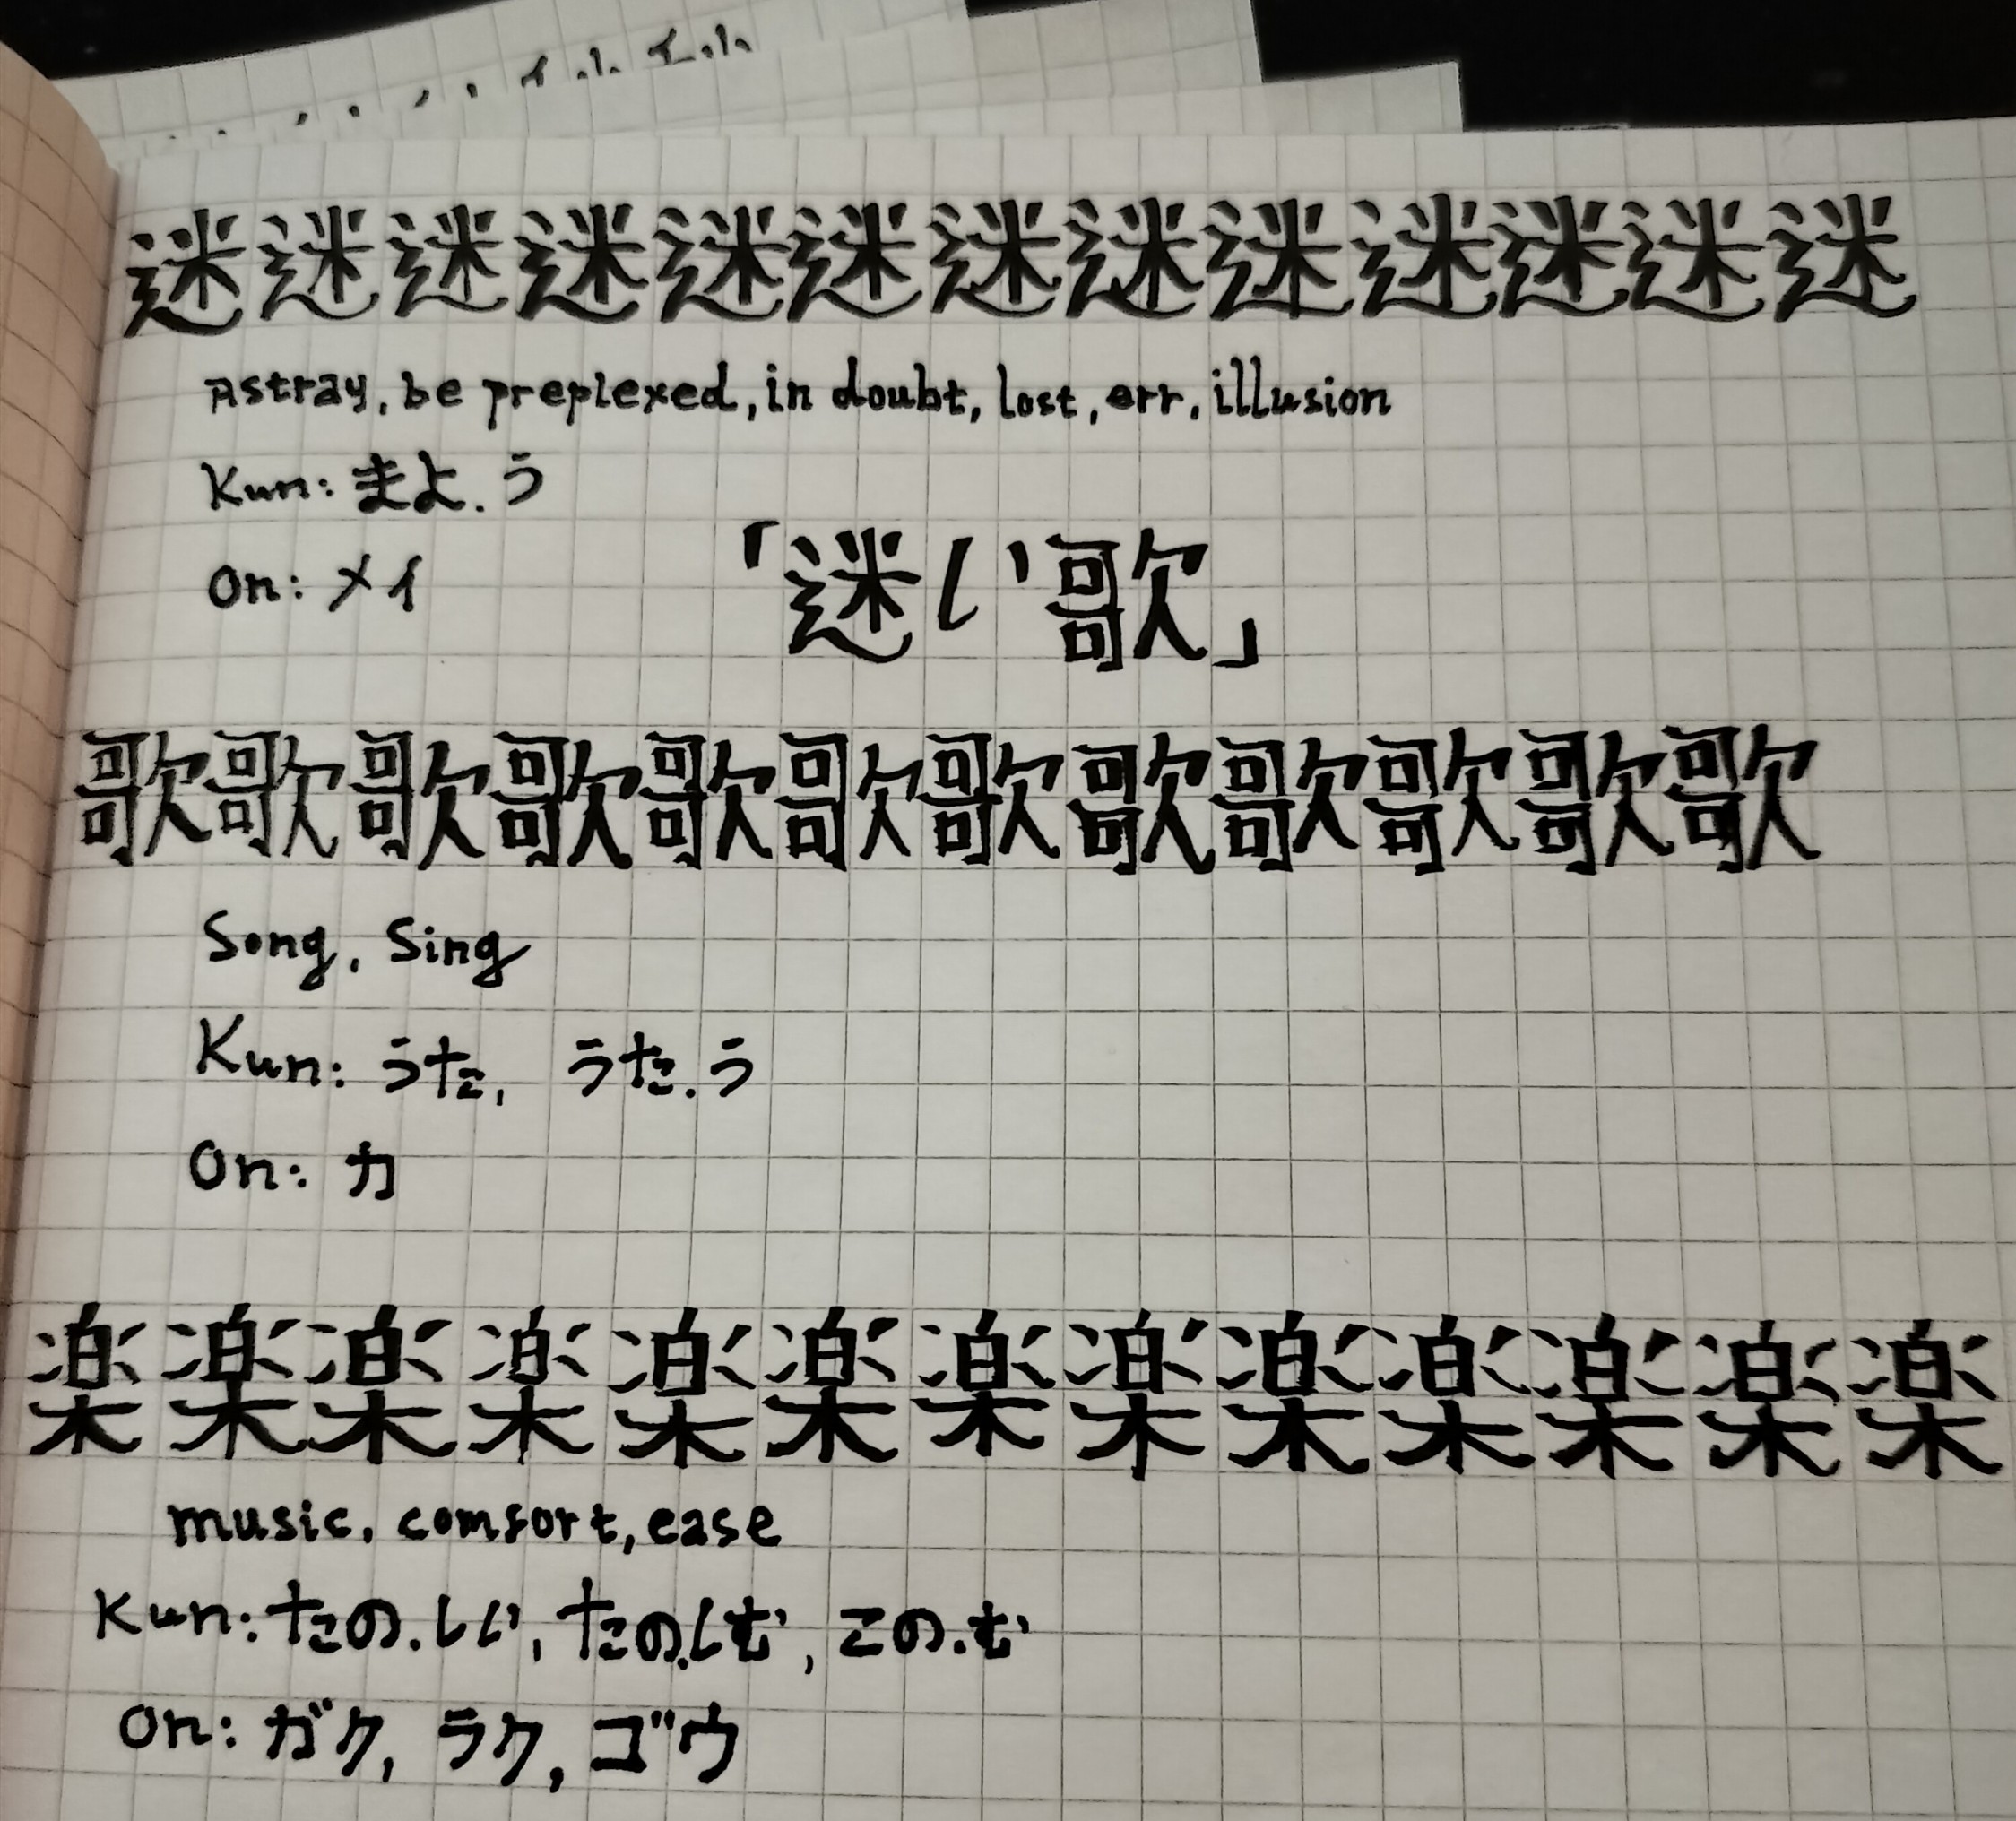 迷迷迷迷迷迷迷迷迷迷迷迷迷
Astray, be preplexed, in doubt, lost, err, illusion
Kun: まよ.う
On: メイ
「迷い歌」
歌歌歌歌歌歌歌歌歌歌歌歌
Song, Sing
Kun: うた, うた.う
On: カ
楽楽楽楽楽楽楽楽楽楽楽楽楽
music, comfort, ease
Kun: たの.しい, たの.しむ, この.む
On: ガク, ラク, ゴウ